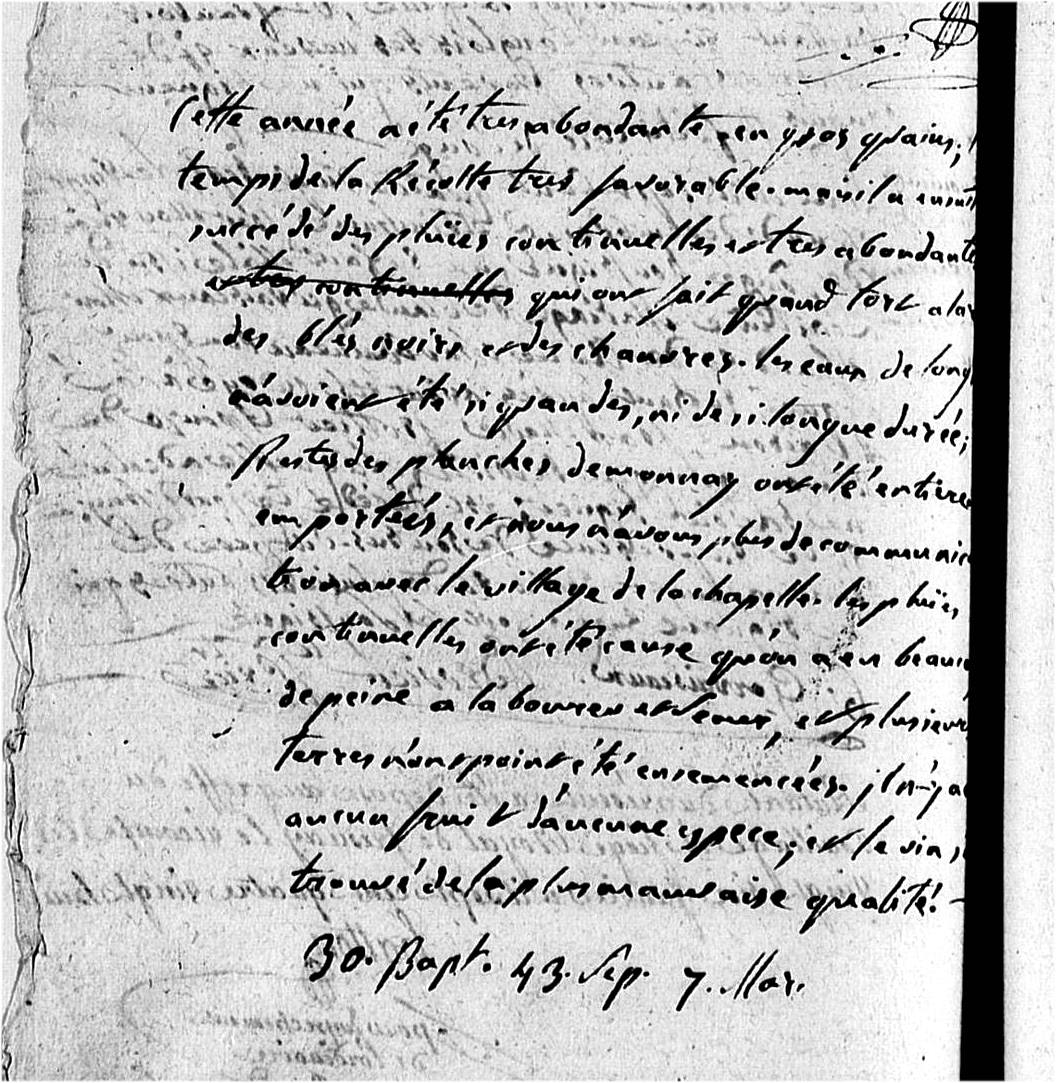 Cette année a été tres abondante en gros grains,
temps de la Récolte tres favorable. mais il a ensuit
succédé des pluïes continuelles et tres abondante
et tres continuelles qui ont fait grand tort a la
des blés noirs et des chanvres. les eaux de long
n'avoient été si grandes, ni de si longue durée;
Restes des planches de monnay ont été entiere
emportés, et nous n'avons plus de communica
tion avec le village de la chapelle. les pluïes
continuelles ont été cause qu'on a eu beauc
de peine a labourer et semer, et plusieurs
terres n'ont point été ensemencées. jl n'y a
aucun fruit d'aucune espece, et le vin s
trouvé de la plus mauvaise qualité.
30. Bapt. 43. Sep. 7. Mar.